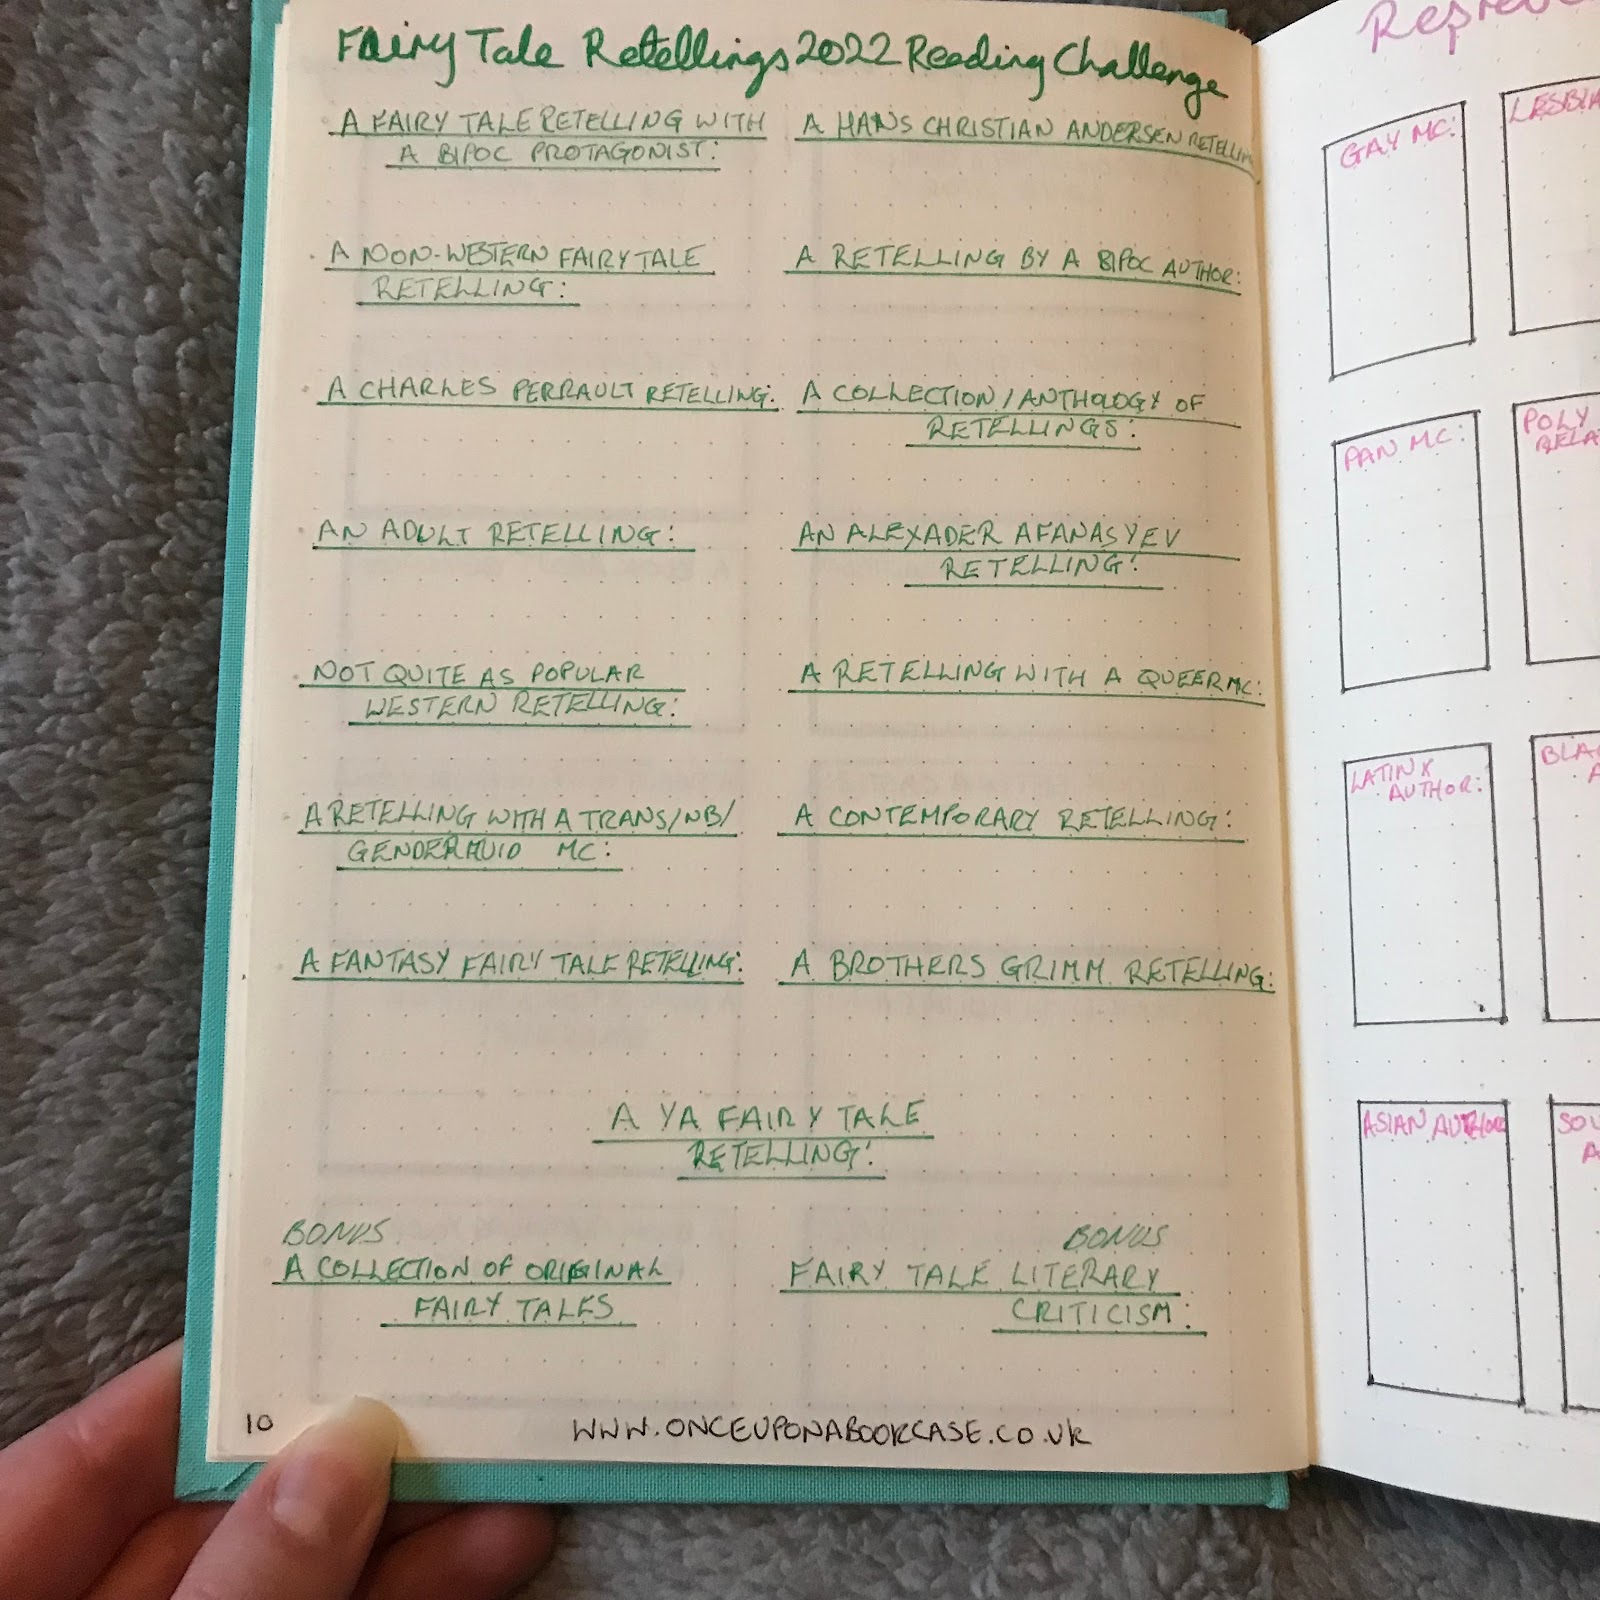 Fairy Tale Retellings 2022 Reading Challenge
A FAIRY TALE RETELLING WITH
A BIPOC PROTAGONIST:
A HANS CHRISTIAN ANDERSEN RETELLING
A NON-WESTERN FAIRY TALE
RETELLING:
A RETELLING BY A BIPOC AUTHOR:
A CHARLES PERRAULT RETELLING:
A COLLECTION/ANTHOLOGY OF
RETELLINGS:
AN ADULT RETELLING:
AN ALEXADER AFANASYEV
RETELLING:
NOT QUITE AS POPULAR
WESTERN RETELLING:
A RETELLING WITH A QUEER MC:
A RETELLING WITH A TRANS/NB/
GENDERFLUID MC:
A CONTEMPORARY RETELLING:
A FANTASY FAIRY TALE RETELLING:
A BROTHERS GRIMM RETELLING:
A YA FAIRY TALE
RETELLING:
BONUS
A COLLECTION OF ORIGINAL
FAIRY TALES
BONUS
FAIRY TALE LITERARY
CRITICISM:
10
WWW.ONCEUPONABOOKCASE.CO.UK
GAY MC:
PAN MC:
POLY
LATINX
AUTHOR:
ASIAN AUTHOR